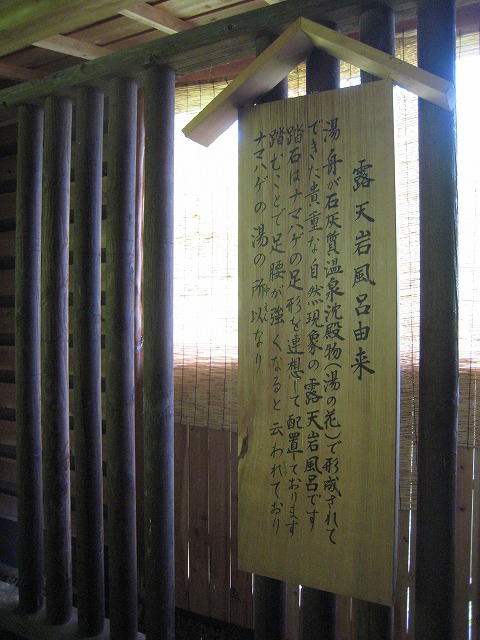 露天岩風呂由来
湯舟が石灰質温泉沈殿物(湯の花)で形成されて
できた貴重な自然現象の露天岩風呂です
踏石はナマハゲの足形を連想して配置しております
踏むことで足腰が強くなると云われており
ナマハゲの湯の所以なり